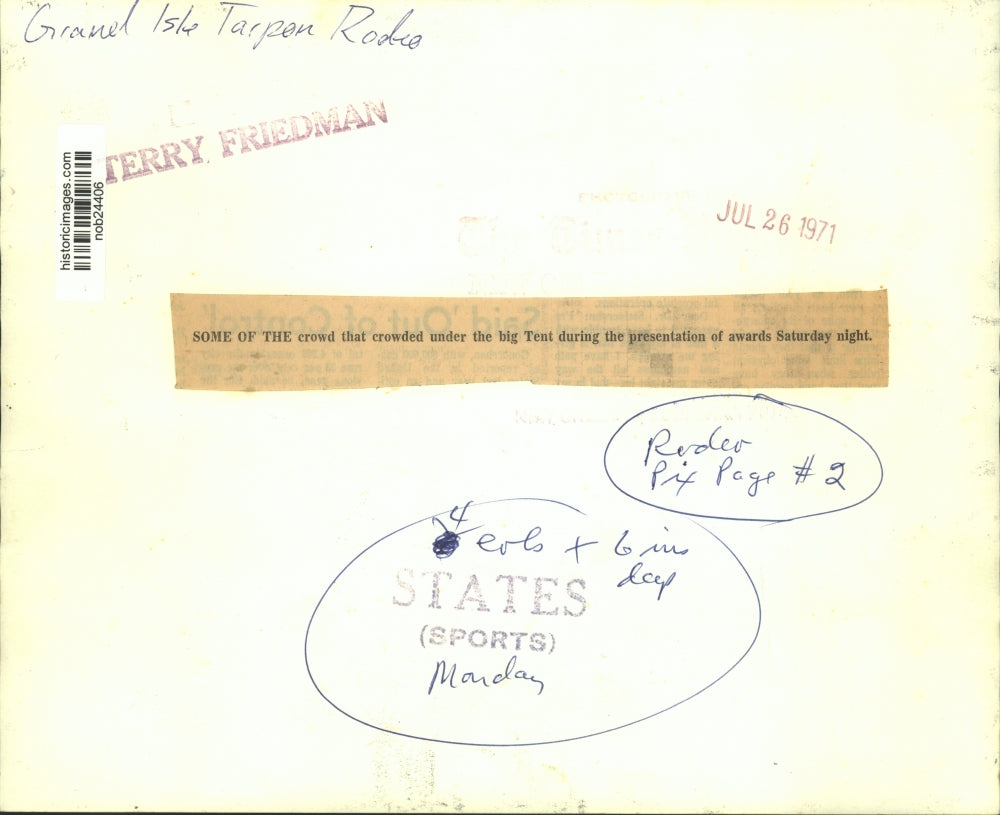 Grand Isle Tarpon Rodeo
TERRY FRIEDMAN
historicimages.com
nob24406
JUL 26 1971
SOME OF THE crowd that crowded under the big Tent during the presentation of awards Saturday night.
Rodeo
Pix Page # 2
4 cols + 6 ins
deep
STATES
(SPORTS)
Monday